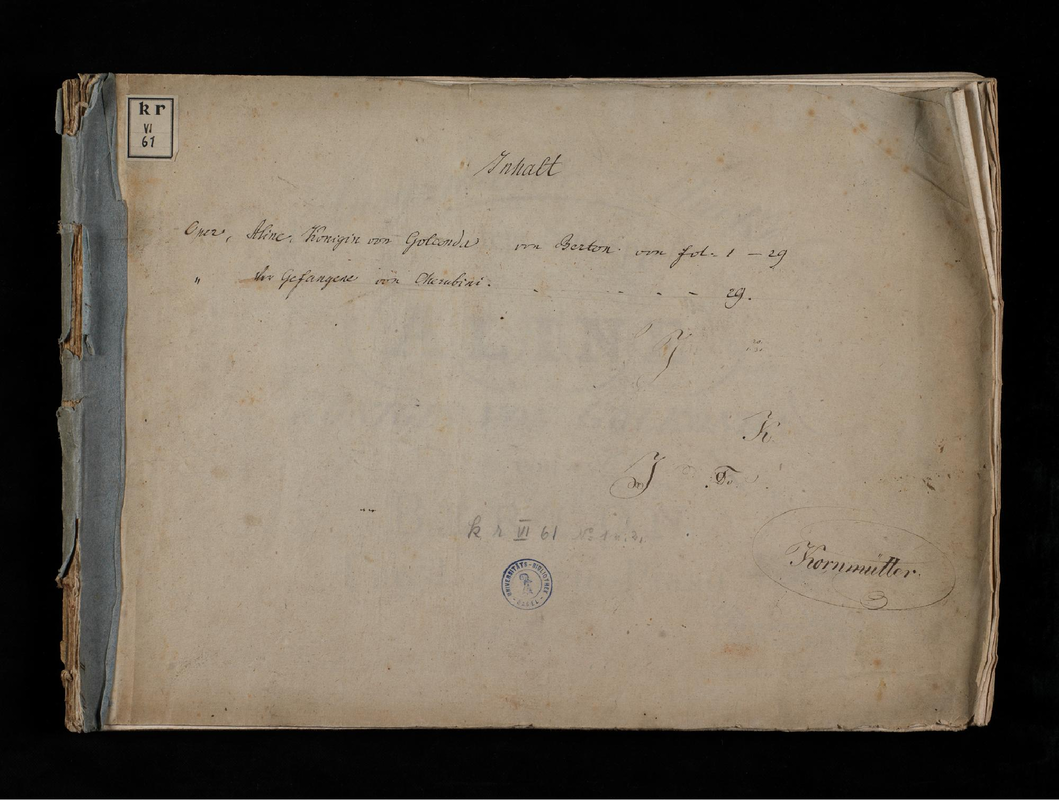 kr
VI
61
Inhalt
Oper, Aline, Königin von Golconda von Berton. von fol. 1 – 29
" Der Gefangene von Cherubini. . . . . – 29.
J
K
J
k r VI 61 No 1 u. 2.
UNIVERSITÄTS-BIBLIOTHEK
BASEL
Kornmütter